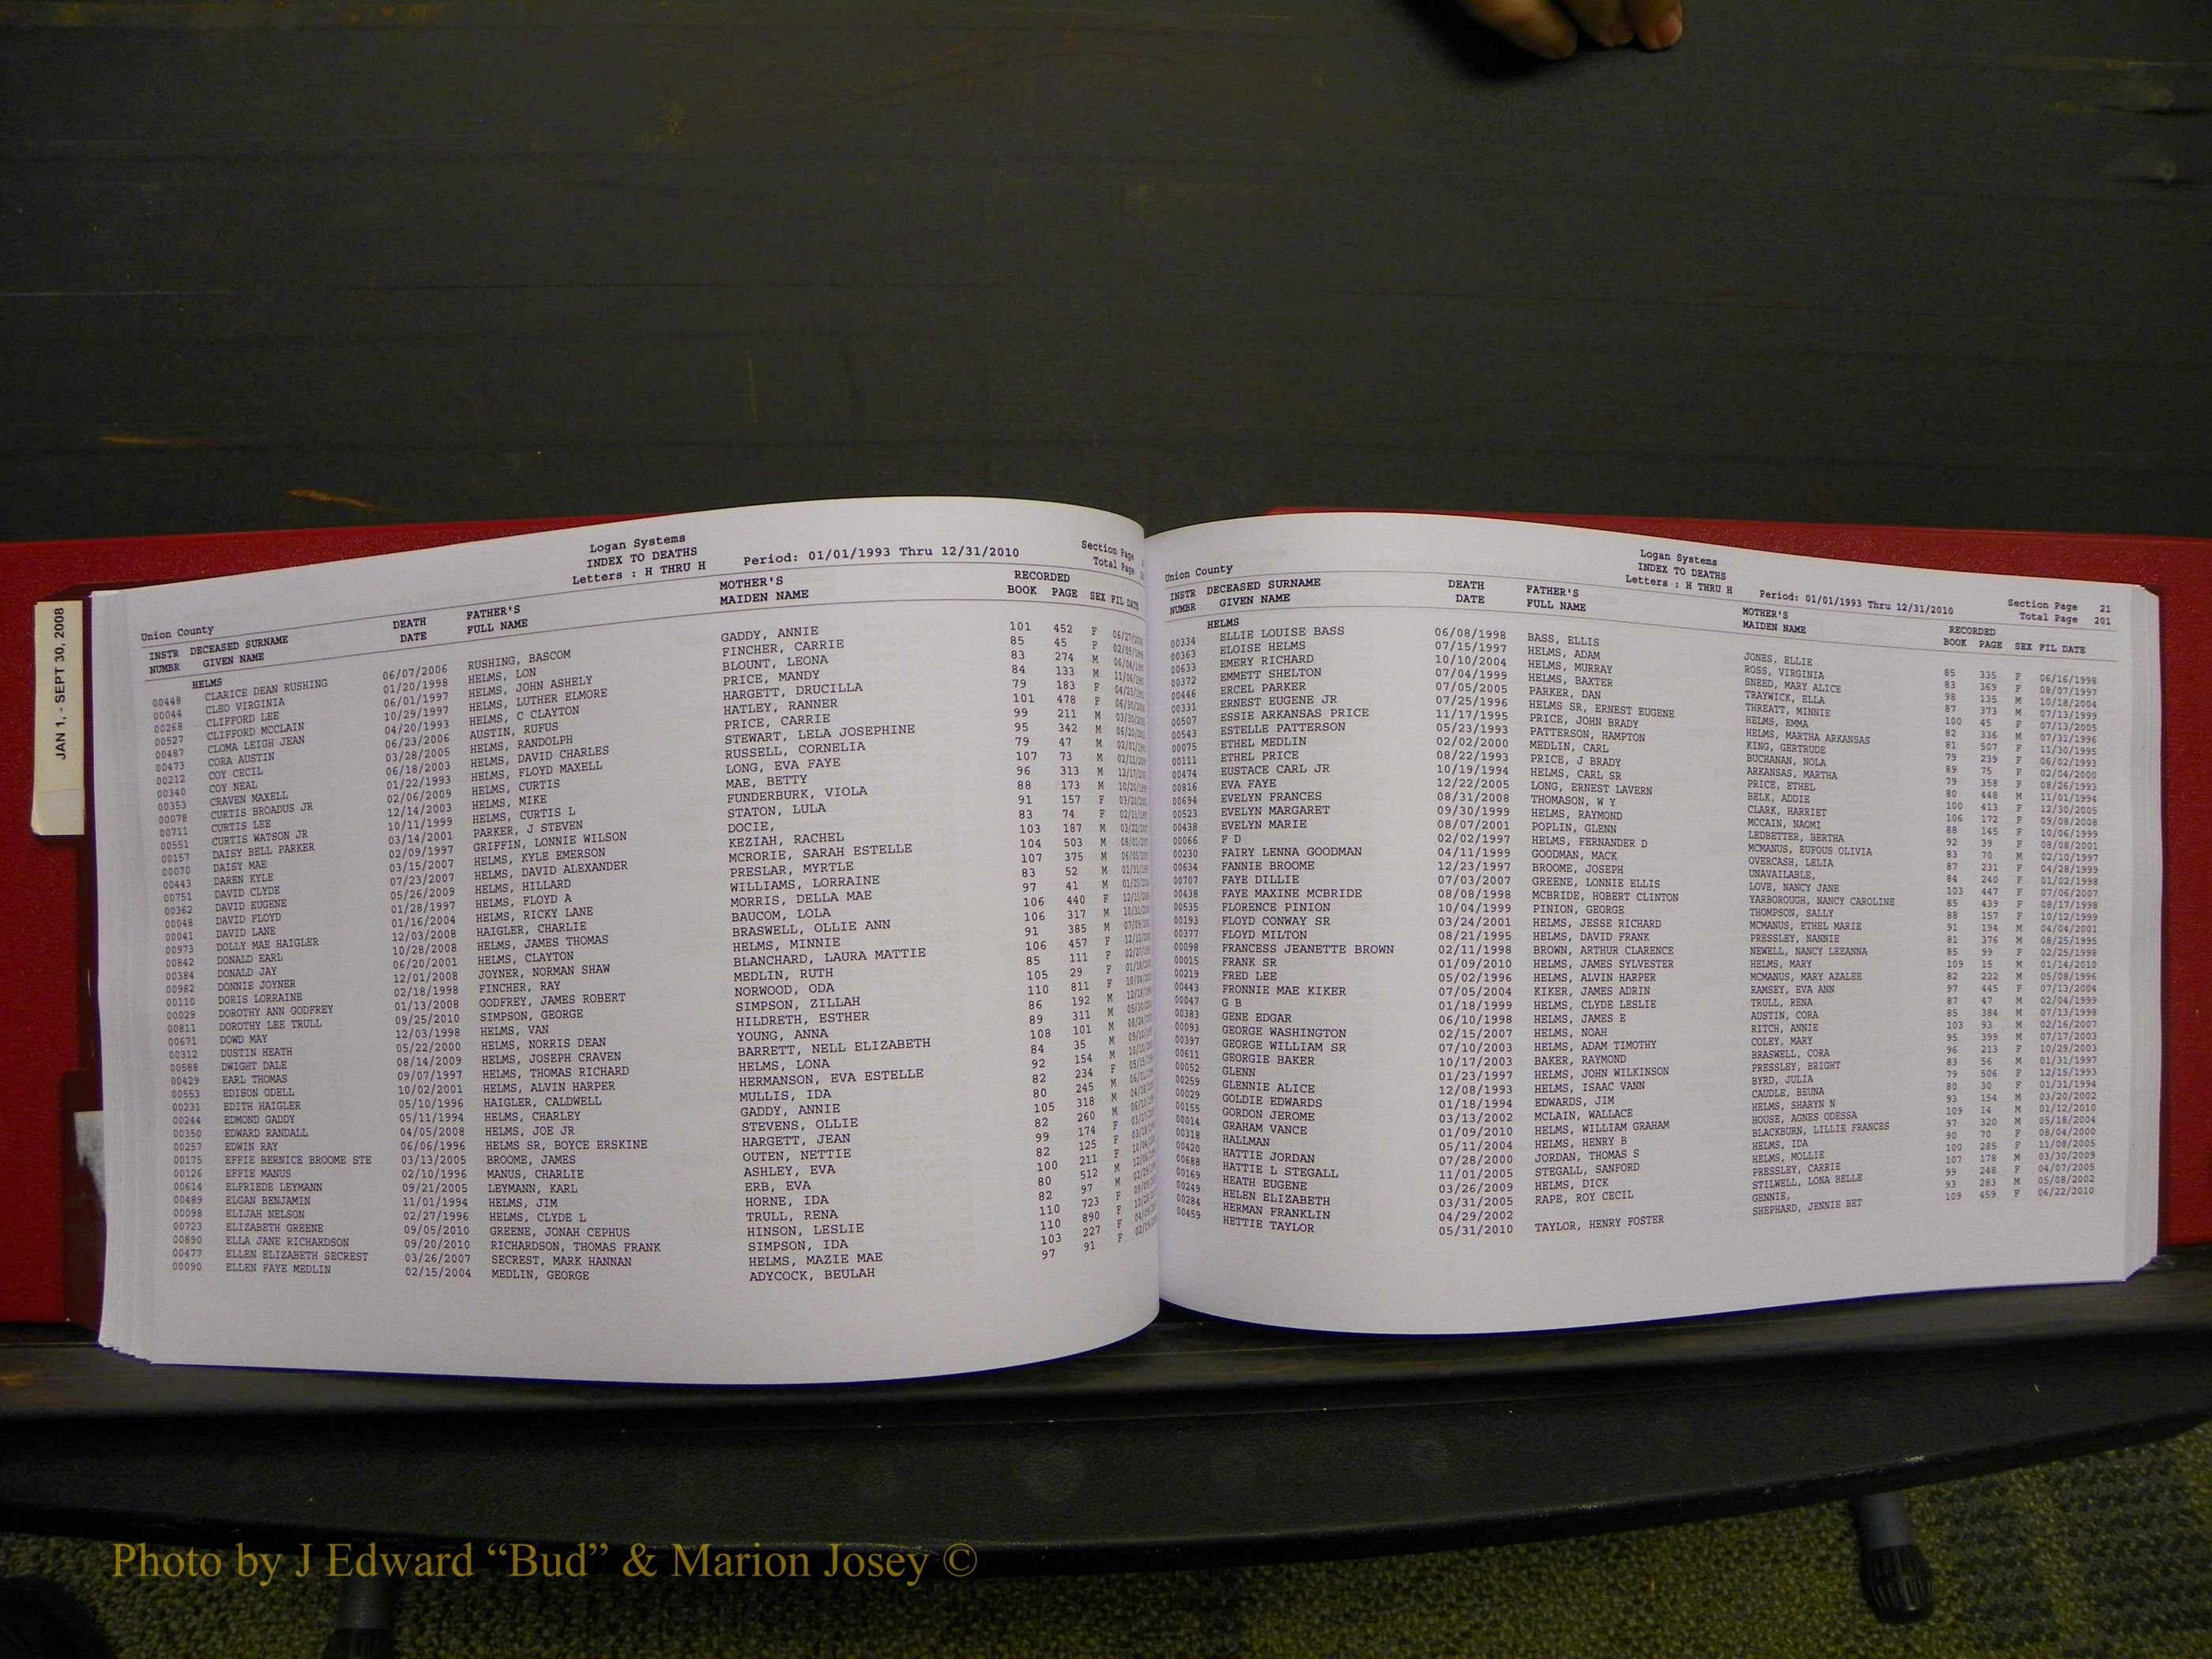 JAN 1, - SEPT 30, 2008
Logan Systems
INDEX TO DEATHS
Union County Letters : H THRU H Period: 01/01/1993 Thru 12/31/2010 Section Page
Total Page
INSTR DECEASED SURNAME DEATH FATHER'S MOTHER'S RECORDED
NUMBR GIVEN NAME DATE FULL NAME MAIDEN NAME BOOK PAGE SEX FIL DATE
HELMS
00448 CLARICE DEAN RUSHING 06/07/2006 RUSHING, BASCOM GADDY, ANNIE 101 452 F
00044 CLEO VIRGINIA 01/20/1998 HELMS, LON FINCHER, CARRIE 85 45 F
00268 CLIFFORD LEE 06/01/1997 HELMS, JOHN ASHELY BLOUNT, LEONA 83 274 M
00527 CLIFFORD MCCLAIN 10/29/1997 HELMS, LUTHER ELMORE PRICE, MANDY 84 133 M
00487 CLOMA LEIGH JEAN 04/20/1993 HELMS, C CLAYTON HARGETT, DRUCILLA 79 183 F
00473 CORA AUSTIN 06/23/2006 AUSTIN, RUFUS HATLEY, RANNER 101 478 F
00212 COY CECIL 03/28/2005 HELMS, RANDOLPH PRICE, CARRIE 99 211 M
00340 COY NEAL 06/18/2003 HELMS, DAVID CHARLES STEWART, LELA JOSEPHINE 95 342 M
00353 CRAVEN MAXELL 01/22/1993 HELMS, FLOYD MAXELL RUSSELL, CORNELIA 79 47 M
00078 CURTIS BROADUS JR 02/06/2009 HELMS, CURTIS LONG, EVA FAYE 107 73 M
00711 CURTIS LEE 12/14/2003 HELMS, MIKE MAE, BETTY 96 313 M
00551 CURTIS WATSON JR 10/11/1999 HELMS, CURTIS L FUNDERBURK, VIOLA 88 173 M
00157 DAISY BELL PARKER 03/14/2001 PARKER, J STEVEN STATON, LULA 91 157 F
00070 DAISY MAE 02/09/1997 GRIFFIN, LONNIE WILSON DOCIE, 83 74 F
00443 DAREN KYLE 03/15/2007 HELMS, KYLE EMERSON KEZIAH, RACHEL 103 187 M
00751 DAVID CLYDE 07/23/2007 HELMS, DAVID ALEXANDER MCRORIE, SARAH ESTELLE 104 503 M
00362 DAVID EUGENE 05/26/2009 HELMS, HILLARD PRESLAR, MYRTLE 107 375 M
00048 DAVID FLOYD 01/28/1997 HELMS, FLOYD A WILLIAMS, LORRAINE 83 52 M
00041 DAVID LANE 01/16/2004 HELMS, RICKY LANE MORRIS, DELLA MAE 97 41 M
00973 DOLLY MAE HAIGLER 12/03/2008 HAIGLER, CHARLIE BAUCOM, LOLA 106 440 F
00842 DONALD EARL 10/28/2008 HELMS, JAMES THOMAS BRASWELL, OLLIE ANN 106 317 M
00384 DONALD JAY 06/20/2001 HELMS, CLAYTON HELMS, MINNIE 91 385 M
00982 DONNIE JOYNER 12/01/2008 JOYNER, NORMAN SHAW BLANCHARD, LAURA MATTIE 106 457 F
00110 DORIS LORRAINE 02/18/1998 FINCHER, RAY MEDLIN, RUTH 85 111 F
00029 DOROTHY ANN GODFREY 01/13/2008 GODFREY, JAMES ROBERT NORWOOD, ODA 105 29 F
00811 DOROTHY LEE TRULL 09/25/2010 SIMPSON, GEORGE SIMPSON, ZILLAH 110 811 F
00671 DOWD MAY 12/03/1998 HELMS, VAN HILDRETH, ESTHER 86 192 M
00312 DUSTIN HEATH 05/22/2000 HELMS, NORRIS DEAN YOUNG, ANNA 89 311 M
00588 DWIGHT DALE 08/14/2009 HELMS, JOSEPH CRAVEN BARRETT, NELL ELIZABETH 108 101 M
00429 EARL THOMAS 09/07/1997 HELMS, THOMAS RICHARD HELMS, LONA 84 35 M
00553 EDISON ODELL 10/02/2001 HELMS, ALVIN HARPER HERMANSON, EVA ESTELLE 92 154 M
00231 EDITH HAIGLER 05/10/1996 HAIGLER, CALDWELL MULLIS, IDA 82 234 F
00244 EDMOND GADDY 05/11/1994 HELMS, CHARLEY GADDY, ANNIE 80 245 M
00350 EDWARD RANDALL 04/05/2008 HELMS, JOE JR STEVENS, OLLIE 105 318 M
00257 EDWIN RAY 06/06/1996 HELMS SR, BOYCE ERSKINE HARGETT, JEAN 82 260 M
00175 EFFIE BERNICE BROOME STE 03/13/2005 BROOME, JAMES OUTEN, NETTIE 99 174 F
00126 EFFIE MANUS 02/10/1996 MANUS, CHARLIE ASHLEY, EVA 82 125 F
00614 ELFRIEDE LEYMANN 09/21/2005 LEYMANN, KARL ERB, EVA 100 211 F
00489 ELGAN BENJAMIN 11/01/1994 HELMS, JIM HORNE, IDA 80 512 M
00098 ELIJAH NELSON 02/27/1996 HELMS, CLYDE L TRULL, RENA 82 97 M
00723 ELIZABETH GREENE 09/05/2010 GREENE, JONAH CEPHUS HINSON, LESLIE 110 723 F
00890 ELLA JANE RICHARDSON 09/20/2010 RICHARDSON, THOMAS FRANK SIMPSON, IDA 110 890 F
00477 ELLEN ELIZABETH SECREST 03/26/2007 SECREST, MARK HANNAN HELMS, MAZIE MAE 103 227 F
00090 ELLEN FAYE MEDLIN 02/15/2004 MEDLIN, GEORGE ADYCOCK, BEULAH 97 91 F
Logan Systems
INDEX TO DEATHS
Union County Letters : H THRU H Period: 01/01/1993 Thru 12/31/2010 Section Page 21
Total Page 201
INSTR DECEASED SURNAME DEATH FATHER'S MOTHER'S RECORDED
NUMBR GIVEN NAME DATE FULL NAME MAIDEN NAME BOOK PAGE SEX FIL DATE
HELMS
00334 ELLIE LOUISE BASS 06/08/1998 BASS, ELLIS JONES, ELLIE 85 335 F 06/16/1998
00363 ELOISE HELMS 07/15/1997 HELMS, ADAM ROSS, VIRGINIA 83 369 F 08/07/1997
00633 EMERY RICHARD 10/10/2004 HELMS, MURRAY SNEED, MARY ALICE 98 135 M 10/18/2004
00372 EMMETT SHELTON 07/04/1999 HELMS, BAXTER TRAYWICK, ELLA 87 373 M 07/13/1999
00446 ERCEL PARKER 07/05/2005 PARKER, DAN THREATT, MINNIE 100 45 F 07/13/2005
00331 ERNEST EUGENE JR 07/25/1996 HELMS SR, ERNEST EUGENE HELMS, EMMA 82 336 M 07/31/1996
00507 ESSIE ARKANSAS PRICE 11/17/1995 PRICE, JOHN BRADY HELMS, MARTHA ARKANSAS 81 507 F 11/30/1995
00543 ESTELLE PATTERSON 05/23/1993 PATTERSON, HAMPTON KING, GERTRUDE 79 239 F 06/02/1993
00075 ETHEL MEDLIN 02/02/2000 MEDLIN, CARL BUCHANAN, NOLA 89 75 F 02/04/2000
00111 ETHEL PRICE 08/22/1993 PRICE, J BRADY ARKANSAS, MARTHA 79 358 F 08/26/1993
00474 EUSTACE CARL JR 10/19/1994 HELMS, CARL SR PRICE, ETHEL 80 448 M 11/01/1994
00816 EVA FAYE 12/22/2005 LONG, ERNEST LAVERN BELK, ADDIE 100 413 F 12/30/2005
00694 EVELYN FRANCES 08/31/2008 THOMASON, W Y CLARK, HARRIET 106 172 F 09/08/2008
00523 EVELYN MARGARET 09/30/1999 HELMS, RAYMOND MCCAIN, NAOMI 88 145 F 10/06/1999
00438 EVELYN MARIE 08/07/2001 POPLIN, GLENN LEDBETTER, BERTHA 92 39 F 08/08/2001
00066 F D 02/02/1997 HELMS, FERNANDER D MCMANUS, EUFOUS OLIVIA 83 70 M 02/10/1997
00230 FAIRY LENNA GOODMAN 04/11/1999 GOODMAN, MACK OVERCASH, LELIA 87 231 F 04/28/1999
00634 FANNIE BROOME 12/23/1997 BROOME, JOSEPH UNAVAILABLE, 84 240 F 01/02/1998
00707 FAYE DILLIE 07/03/2007 GREENE, LONNIE ELLIS LOVE, NANCY JANE 103 447 F 07/06/2007
00438 FAYE MAXINE MCBRIDE 08/08/1998 MCBRIDE, HOBERT CLINTON YARBOROUGH, NANCY CAROLINE 85 439 F 08/17/1998
00535 FLORENCE PINION 10/04/1999 PINION, GEORGE THOMPSON, SALLY 88 157 F 10/12/1999
00193 FLOYD CONWAY SR 03/24/2001 HELMS, JESSE RICHARD MCMANUS, ETHEL MARIE 91 194 M 04/04/2001
00377 FLOYD MILTON 08/21/1995 HELMS, DAVID FRANK PRESSLEY, NANNIE 81 376 M 08/25/1995
00098 FRANCESS JEANETTE BROWN 02/11/1998 BROWN, ARTHUR CLARENCE NEWELL, NANCY LEEANNA 85 99 F 02/25/1998
00015 FRANK SR 01/09/2010 HELMS, JAMES SYLVESTER HELMS, MARY 109 15 M 01/14/2010
00219 FRED LEE 05/02/1996 HELMS, ALVIN HARPER MCMANUS, MARY AZALEE 82 222 M 05/08/1996
00443 FRONNIE MAE KIKER 07/05/2004 KIKER, JAMES ADRIN RAMSEY, EVA ANN 97 445 F 07/13/2004
00047 G B 01/18/1999 HELMS, CLYDE LESLIE TRULL, RENA 87 47 M 02/04/1999
00383 GENE EDGAR 06/10/1998 HELMS, JAMES E AUSTIN, CORA 85 384 M 07/13/1998
00093 GEORGE WASHINGTON 02/15/2007 HELMS, NOAH RITCH, ANNIE 103 93 M 02/16/2007
00397 GEORGE WILLIAM SR 07/10/2003 HELMS, ADAM TIMOTHY COLEY, MARY 95 399 M 07/17/2003
00611 GEORGIE BAKER 10/17/2003 BAKER, RAYMOND BRASWELL, CORA 96 213 F 10/29/2003
00052 GLENN 01/23/1997 HELMS, JOHN WILKINSON PRESSLEY, BRIGHT 83 56 M 01/31/1997
00259 GLENNIE ALICE 12/08/1993 HELMS, ISAAC VANN BYRD, JULIA 79 506 F 12/15/1993
00029 GOLDIE EDWARDS 01/18/1994 EDWARDS, JIM CAUDLE, BEUNA 80 30 F 01/31/1994
00155 GORDON JEROME 03/13/2002 MCLAIN, WALLACE HELMS, SHARYN N 93 154 M 03/20/2002
00014 GRAHAM VANCE 01/09/2010 HELMS, WILLIAM GRAHAM HOUSE, AGNES ODESSA 109 14 M 01/12/2010
00318 HALLMAN 05/11/2004 HELMS, HENRY B BLACKBURN, LILLIE FRANCES 97 320 M 05/18/2004
00420 HATTIE JORDAN 07/28/2000 JORDAN, THOMAS S HELMS, IDA 90 70 F 08/04/2000
00688 HATTIE L STEGALL 11/01/2005 STEGALL, SANFORD HELMS, MOLLIE 100 285 F 11/08/2005
00169 HEATH EUGENE 03/26/2009 HELMS, DICK PRESSLEY, CARRIE 107 178 M 03/30/2009
00249 HELEN ELIZABETH 03/31/2005 RAPE, ROY CECIL STILWELL, LONA BELLE 99 248 F 04/07/2005
00284 HERMAN FRANKLIN 04/29/2002 GENNIE, 93 283 M 05/08/2002
00459 HETTIE TAYLOR 05/31/2010 TAYLOR, HENRY FOSTER SHEPHARD, JENNIE BET 109 459 F 06/22/2010
Photo by J Edward “Bud” & Marion Josey ©